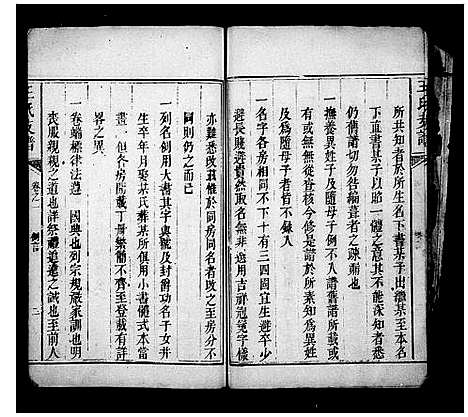 所共知者于所生名下書某子出繼某至本名
下直書某子以昭一體之意其不能深知者悉
仍舊譜切勿咎編葺者之疎漏也
一撫養異姓子及隨母子例不入譜舊譜所載
無事蹟無從查核今修是譜於所素知為異姓
子及隨母子者皆不錄入
一名字各房相同不下十有三四固宜生避卒少
避長賤避貴然取名無非選用吉祥冠冕字樣
亦難悉改茲惟於同房同名者改之至房分不
同則仍之而已
一各名例用大書其字與號及封爵功名子女并
生卒年月娶某氏葬某所俱用小書體式本當
畫一但各房所載丁冊繁簡不齊至登載有詳
畧之異
一卷端標律法遵 國典也列宗規嚴家訓也明
喪服親親之道也詳祭禮追遠之誠也至前人
王氏支譜
卷之一
例言
二